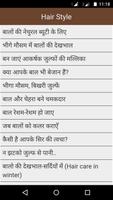 11:18
Hair Style
बालों की नेचुरल ब्यूटी के लिए
भीगे मौसम में बालों की देखभाल
बन जाएं आकर्षक जुल्फों की मल्लिका
क्या आपके बाल भी बेजान हैं?
भीगा मौसम, बिखरी जुल्फें
बाल और चेहरा बने चमकदार
बाल रेशम-रेशम हो जाए
जब बालों को कलर कराएँ
कैसी है आपके सिर की त्वचा?
न झटको जुल्फ से पानी..
बालों की देखभाल-सर्दियों में (Hair care in
winter)